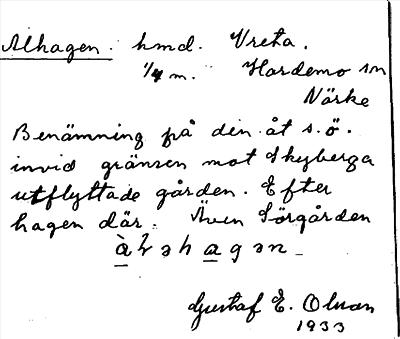 Alhagen. hmd. Vreta.
1/4 m. Hardemo sn
Närke
Benämning på den åt s.ö.
invid gränsen mot Skyberga
utflyttade gården. Efter
hagen där. Även Sörgården
Gustaf E. Olsson
1933